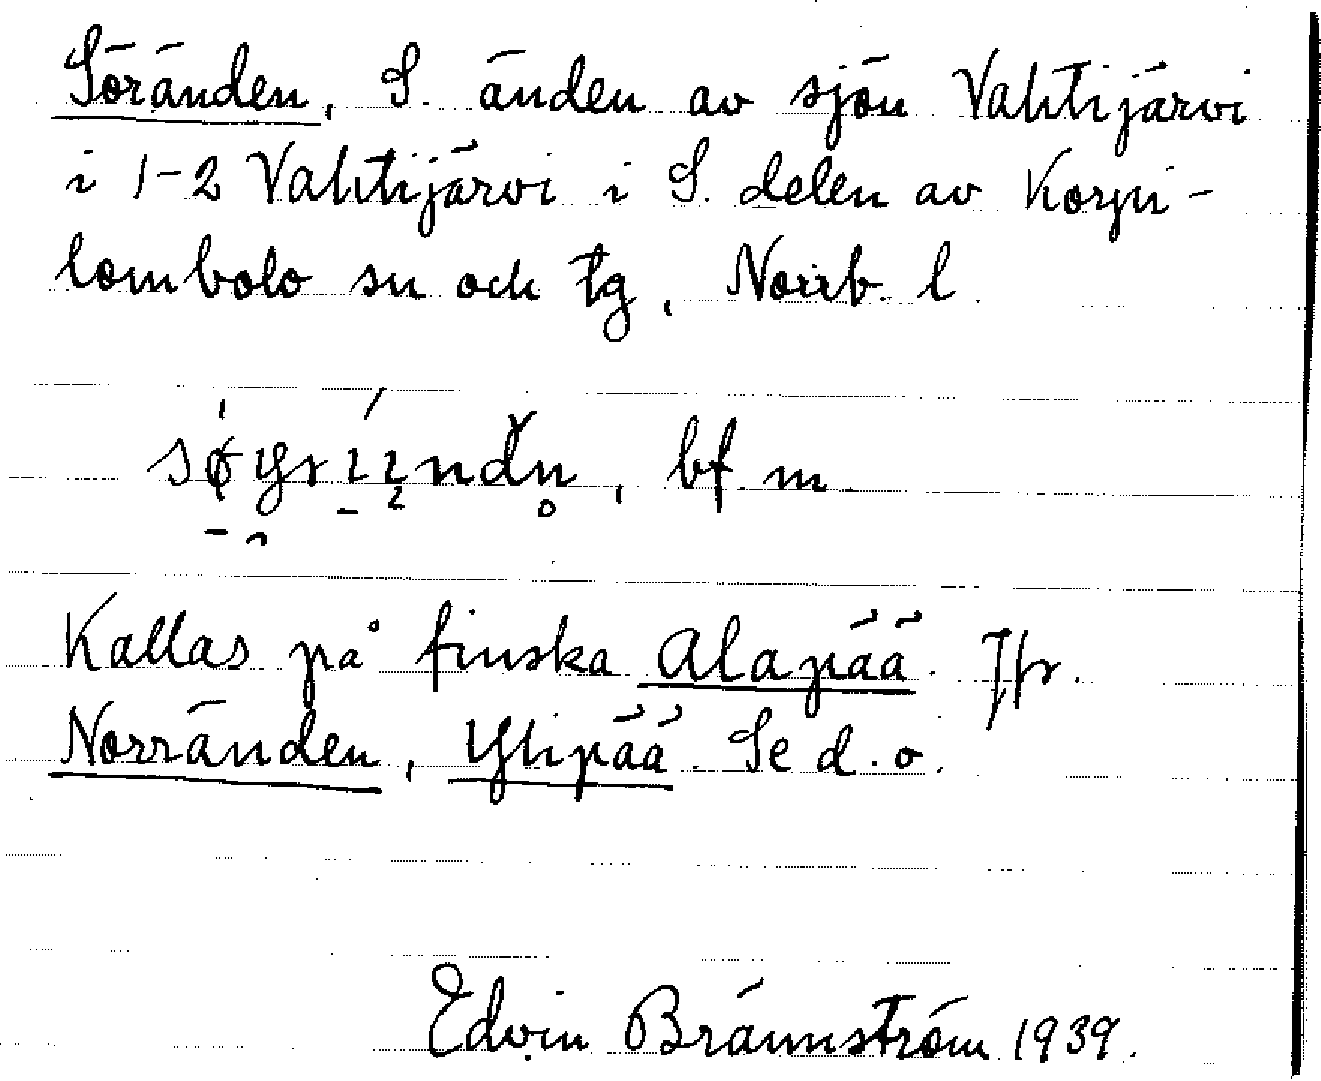 Söränden, S. änden av sjön Vahtijärvi
i 1-2 Vahtijärvi i S. delen av Korpi-
lombolo sn och tg, Norrb. l.
bf m
Kallas på finska Alapää. Jfr.
Norränden, Ylipää. Se d. o.
Edvin Brännström 1939.